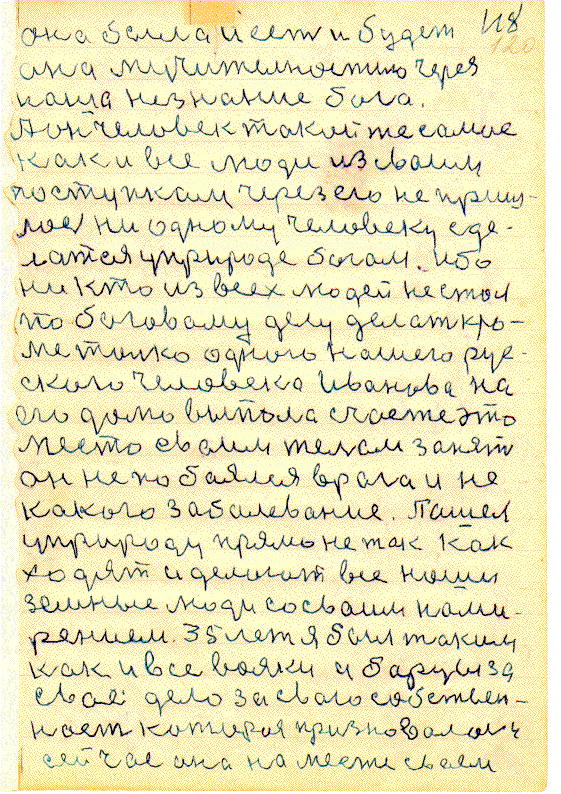 118
120
она была и ест и будет
она мучителностию через
наша незнание бога.
А он человек такой же самое
как и все люди из сваим
поступкам через его не пришу-
лос ни одному человеку сде-
латся у природе богам. ибо
ни кто из всех людей не стал
по боговому делу делат кро-
ме толко одного нашего рус-
ского человека Иванова на
его долю выпола счастие это
место сваим телам занят
он не побаялся врага и не
какого забалевание. Пашел
у природу прямо не так как
ходят и делают все наши
земные люди со сваим нами-
рением. 35 лет я был таким
как и все вояки и барцы за
свае дело за сваго собствен-
ност которая признавалас
сейчас она на месте сваем